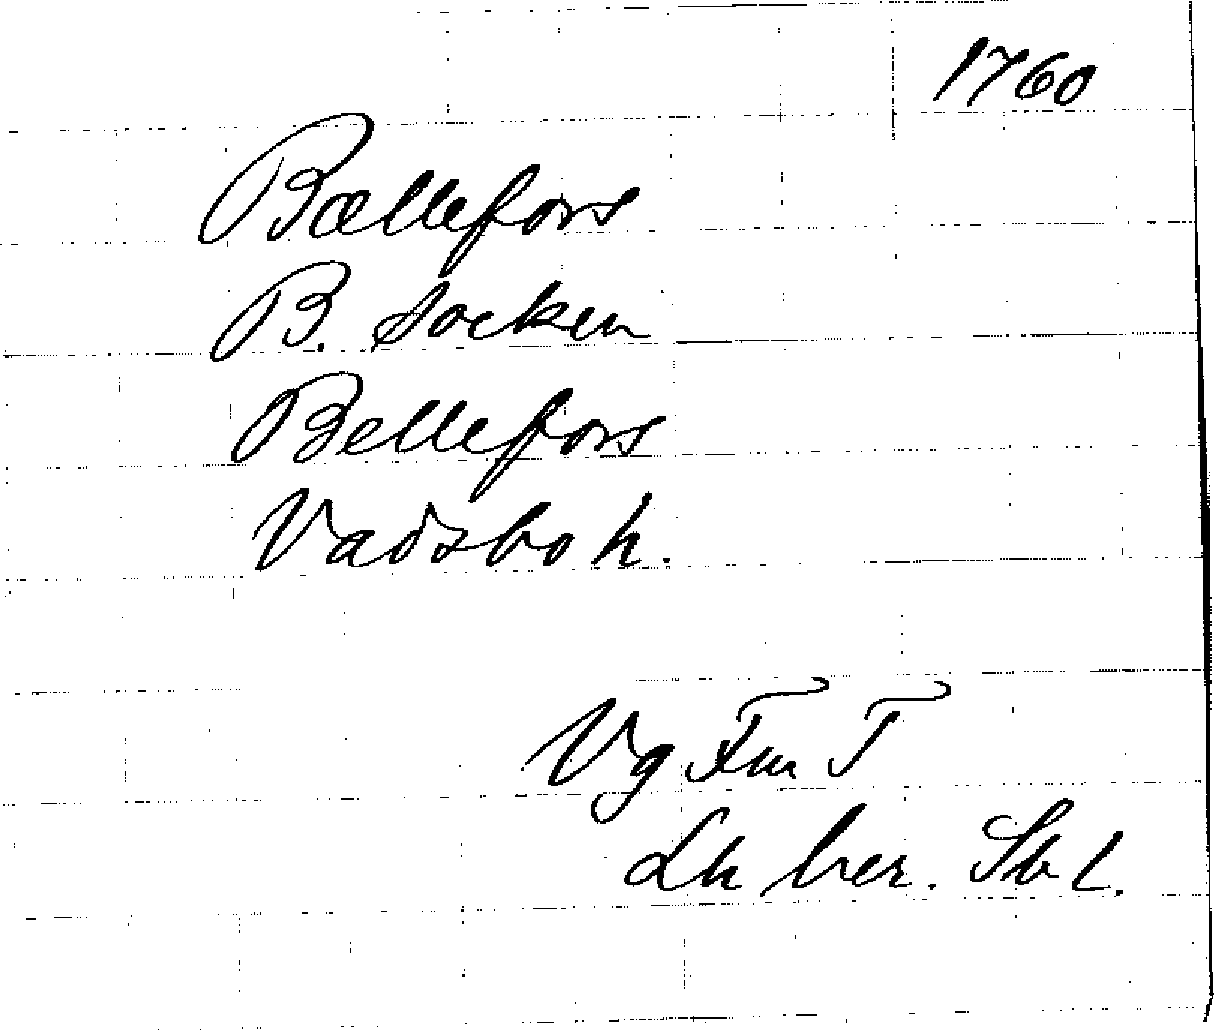 1760
Bællefors
B. socken
Bellefors
Vadsbo h.
Vg Fm T
Lh ber. Sk L.